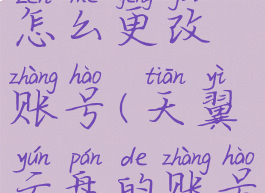 zěn me gēng gǎi
怎么更改
zhàng hào tiān yì
账号(天翼
yún pán de zhàng hào
云盘的账号